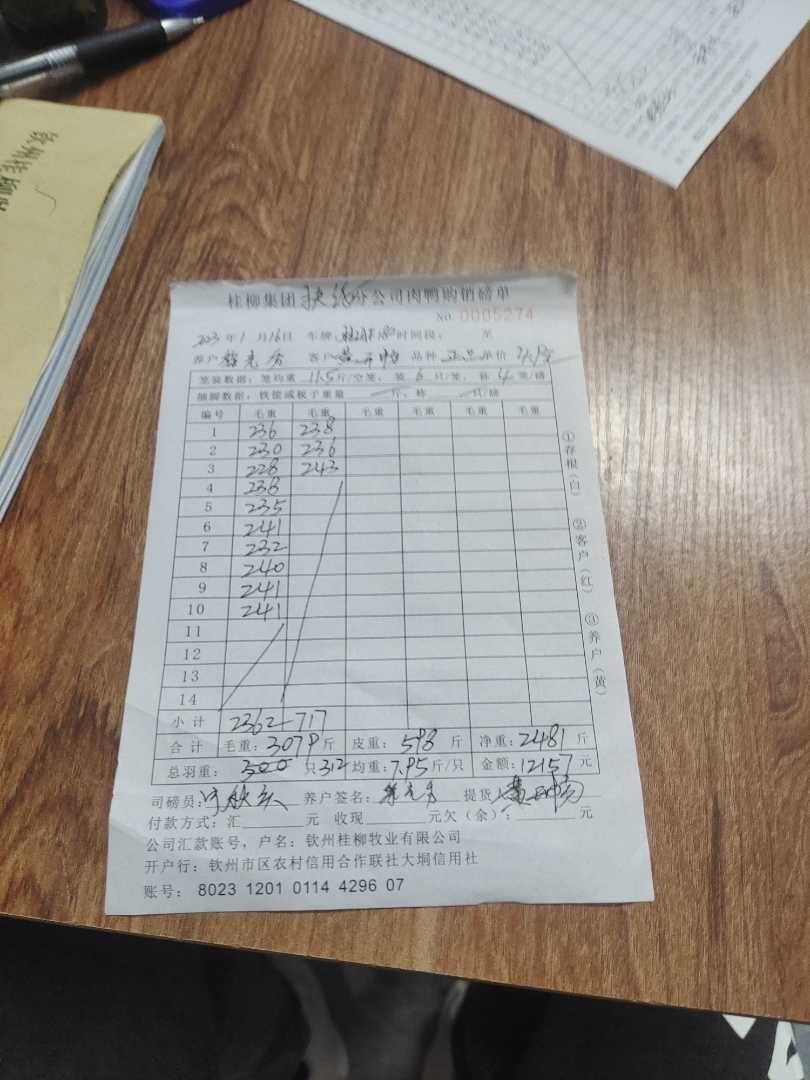 钦州桂柳
桂柳集团扶绥分公司肉鸭购销磅单
NO. 0005274
2023年1月16日 车牌: 时间段: 至
养户 客户 品种 单价
笼装数据: 笼均重 11.5斤/空笼, 装 6 只/笼, 称 4 笼/磅
捆脚数据: 铁筐或板子重量 斤, 称 只/磅
编号 毛重 毛重 毛重 毛重 毛重 毛重
1 236 238
2 230 236
3 228 243
4 238
5 235
6 241
7 232
8 240
9 241
10 241
11
12
13
14
小计 2362 717
合计 毛重: 3079斤 皮重: 598 斤 净重: 2481 斤
总羽重: 只312 均重: 7.95斤/只 金额: 12157元
司磅员: 养户签名: 提货人
付款方式: 汇 元 收现 元欠(余): 元
公司汇款账号, 户名: 钦州桂柳牧业有限公司
开户行: 钦州市区农村信用合作联社大垌信用社
账号: 8023 1201 0114 4296 07
①存根(白)
②客户(红)
③养户(黄)